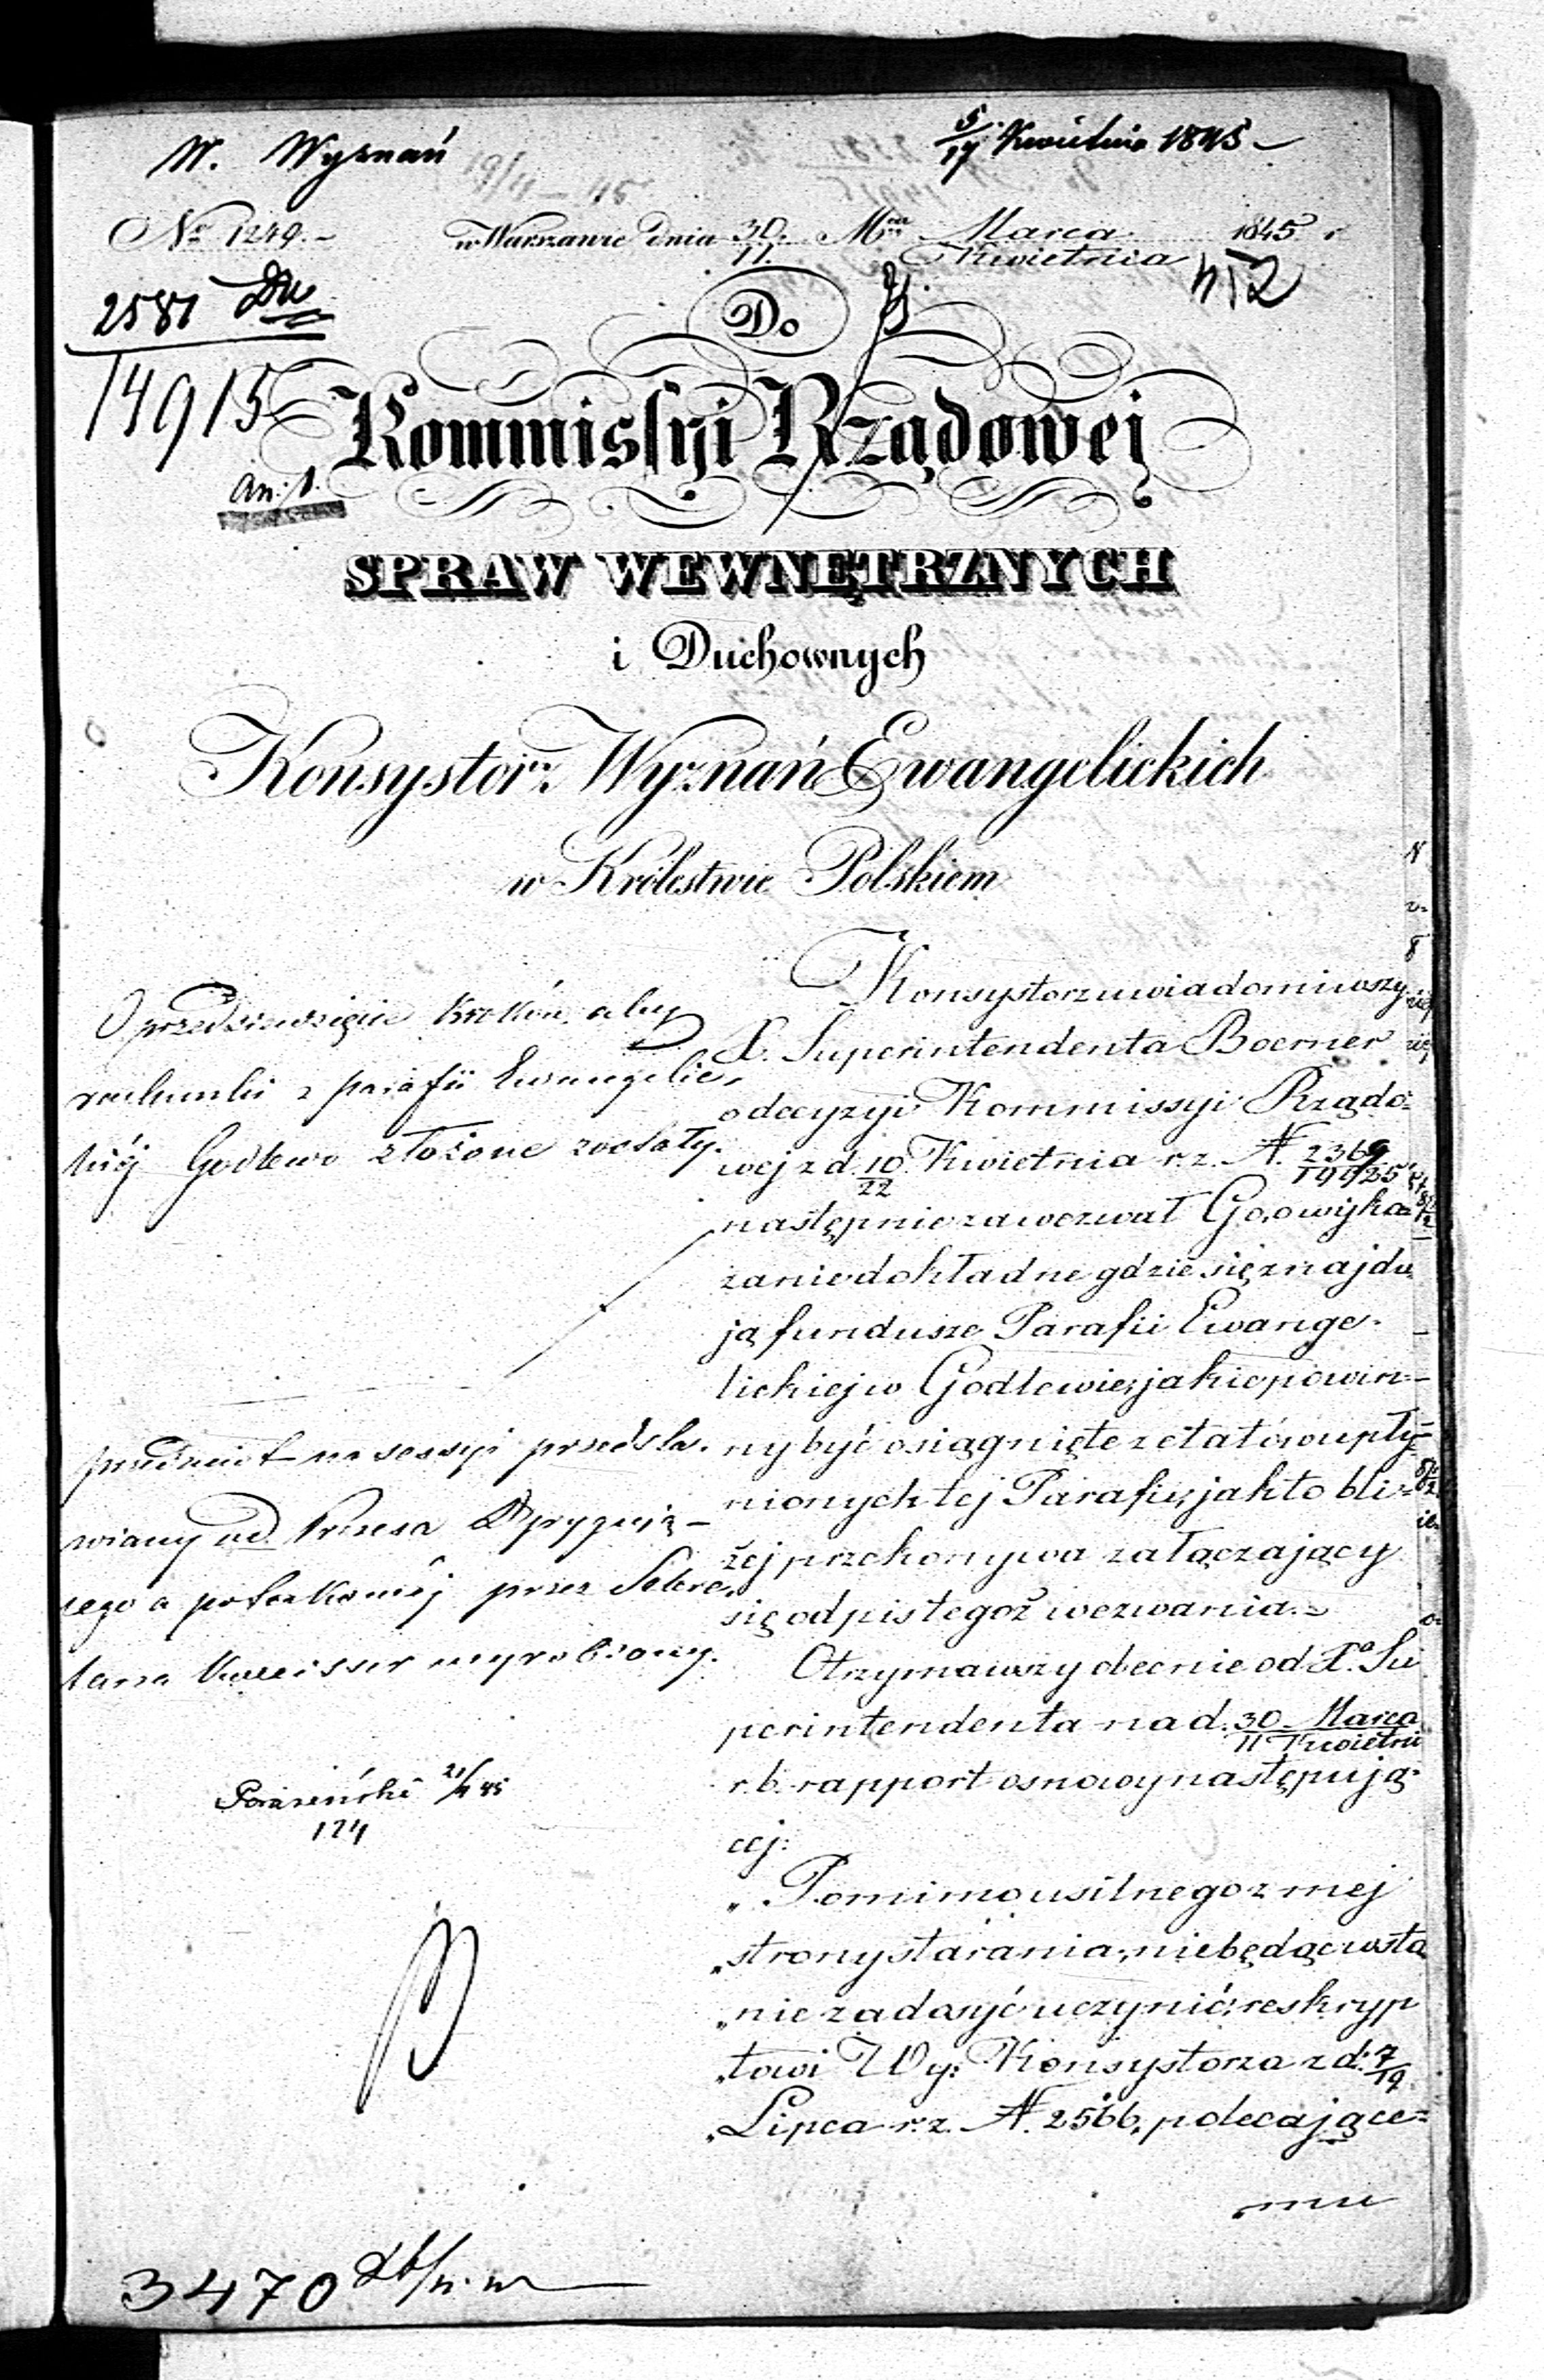 W. Wyznań
5/17 Kwietnia 1845
Nr 1249.
w Warszawie dnia 30/11 Mca Marca/Kwietnia 1845 r
2581
14915
412
an: 1.
Do
Kommissyi Rządowej
SPRAW WEWNĘTRZNYCH
i Duchownych
Konsystorz Wyznań Ewangelickich
w Królestwie Polskiem
O przedsięwzięcie kroków aby
rachunki z parafii Ewangelic,
kiéj Godlewo złożone zostały.
przedmiot na sessyi przedsta,
wiany od Prezesa
cego a przez Sekre,
tarza wyrobiony.
21/4 45
124
3470
Konsystorz uwiadomiwszy
X. Superintendenta Boerner
o decyzyi Kommissyi Rządo=
wej z d. 10/22 Kwietnia r. z. N. 2369/19925
następnie zawezwał Go, o wyka=
zanie dokładne gdzie się znajdu,
ją fundusze Parafii Ewange=
lickiej w Godlewie, jakie powin=
ny być osiągnięte z etatów upły=
nionych tej Parafii, jak to bli=
żej przekonywa załączający
się odpis tegoż wezwania.=
Otrzymawszy obecnie od Xa. Su
perintendenta na d. 30 Marca/11 Kwietni
r. b. rapport osnowy następują=
cej:
„Pomimo usilnego z mej
„strony starania, nie będąc w sta
„nie zadosyć uczynić, reskryp
„towi Wy: Konsystorza z d. 7/19
„Lipca r. z. N. 2566, polecające=
„mu